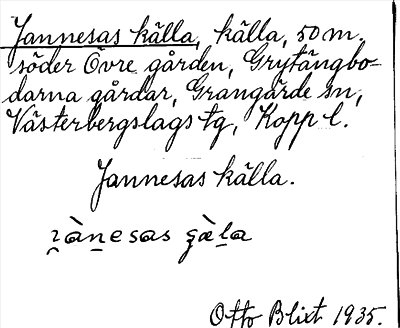 Jannesas källa, källa, 50 m.
söder Övre gården, Grytängbo-
darna gårdar, Grangärde sn,
Västerbergslags tg, Kopp l.
Jannesas källa.
Otto Blixt 1935.